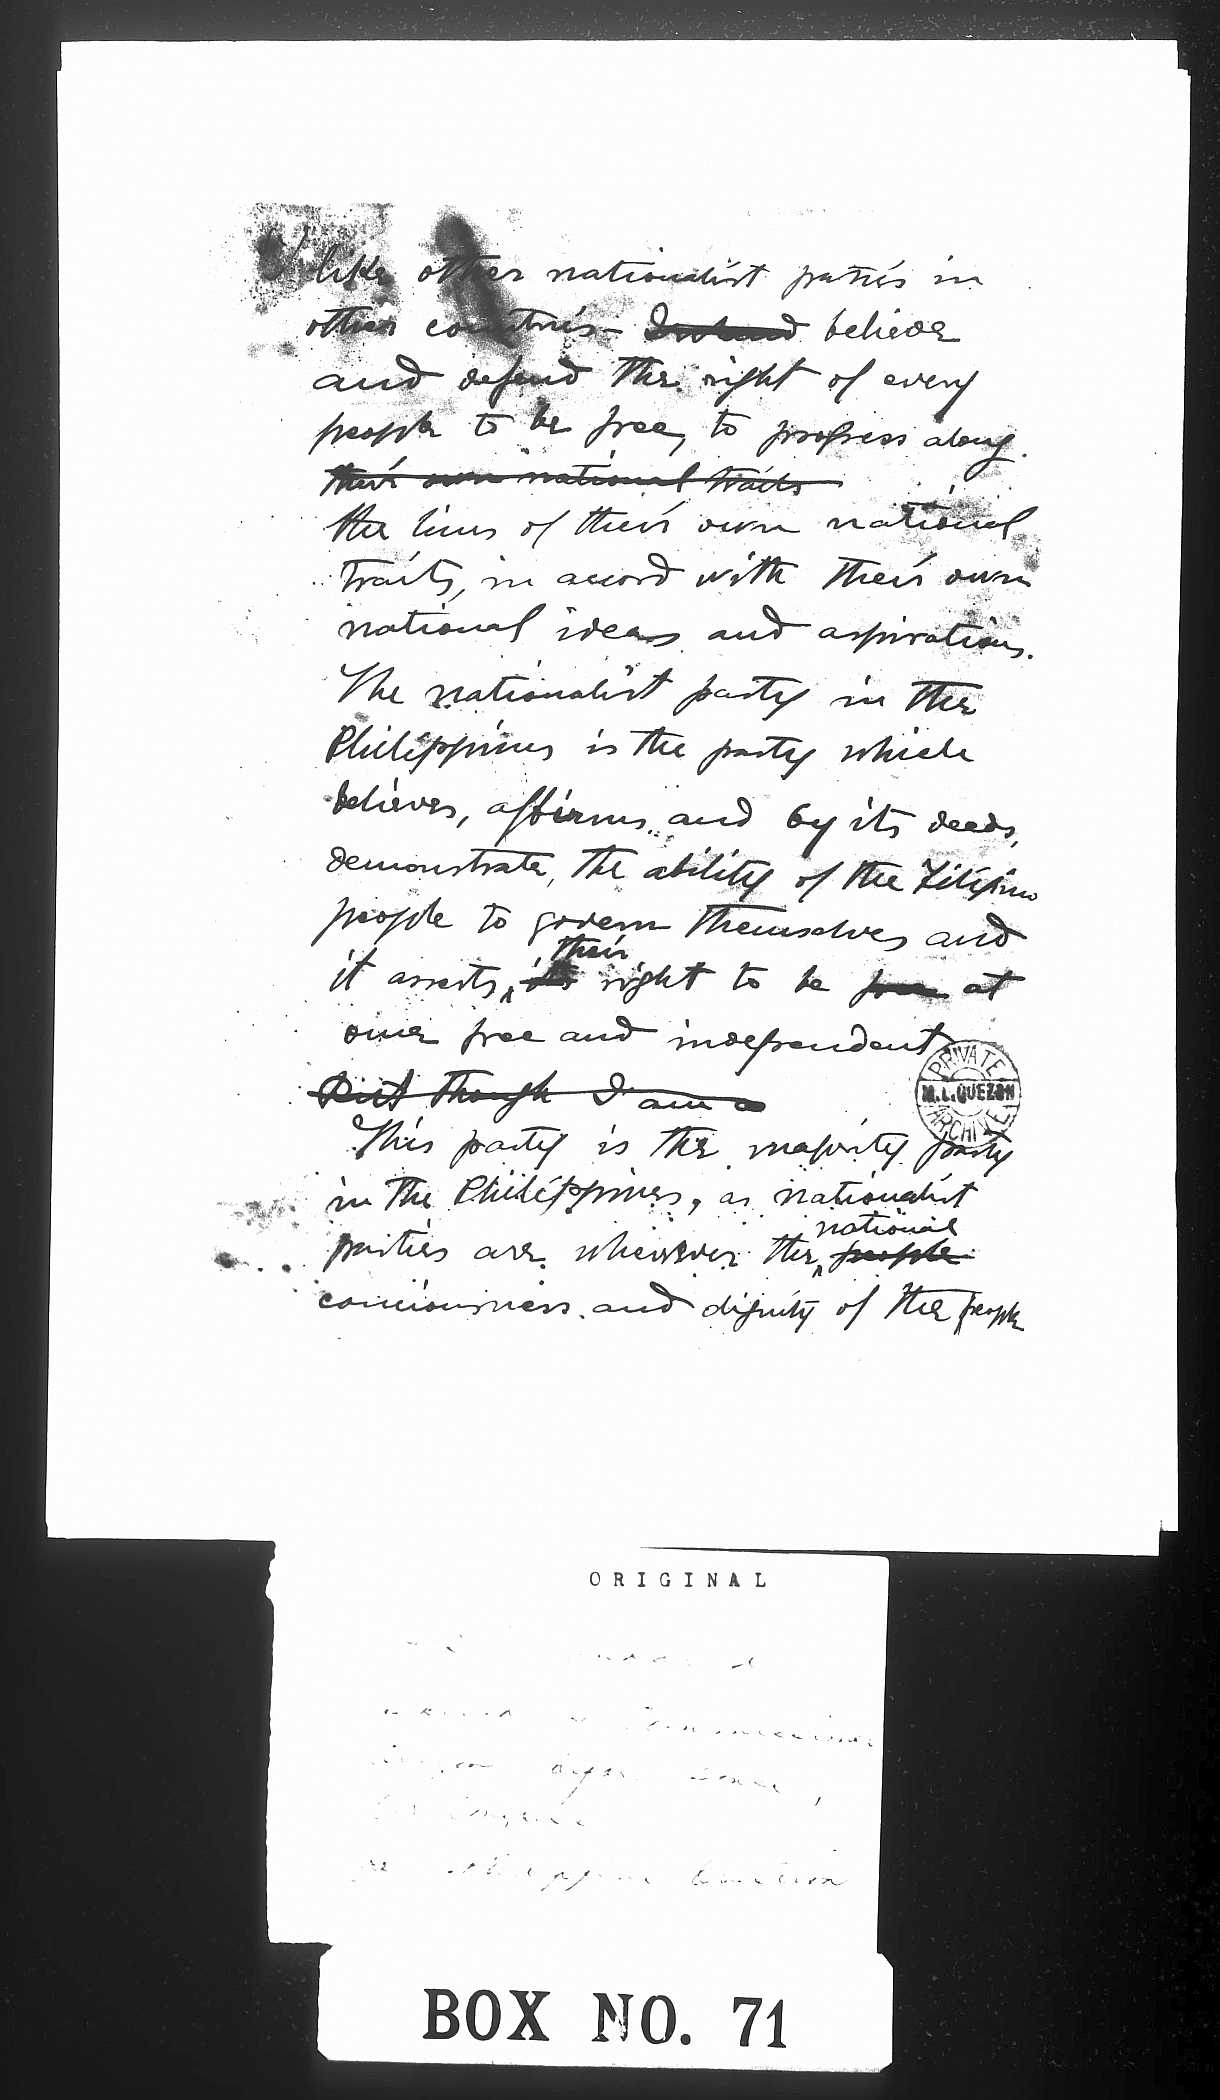 like other nationalist parties in
other countries - Ireland believe
and defend the right of every
people to be free, to progress along
their own national traits
the lines of their own national
traits, in accord with their own
national ideas and aspirations.
The nationalist party in the
Philippines is the party which
believes, affirms and by its deeds,
demonstrate, the ability of the Filipino
people to govern themselves and
their
it asserts, its right to be free at
once free and independent
But though I am a
PRIVATE
M.L.QUEZON
ARCHIVE
This party is the majority party
in the Philippines, as nationalist
national
parties are wherever the people
conciousness and dignity of the people
ORIGINAL
BOX NO. 71